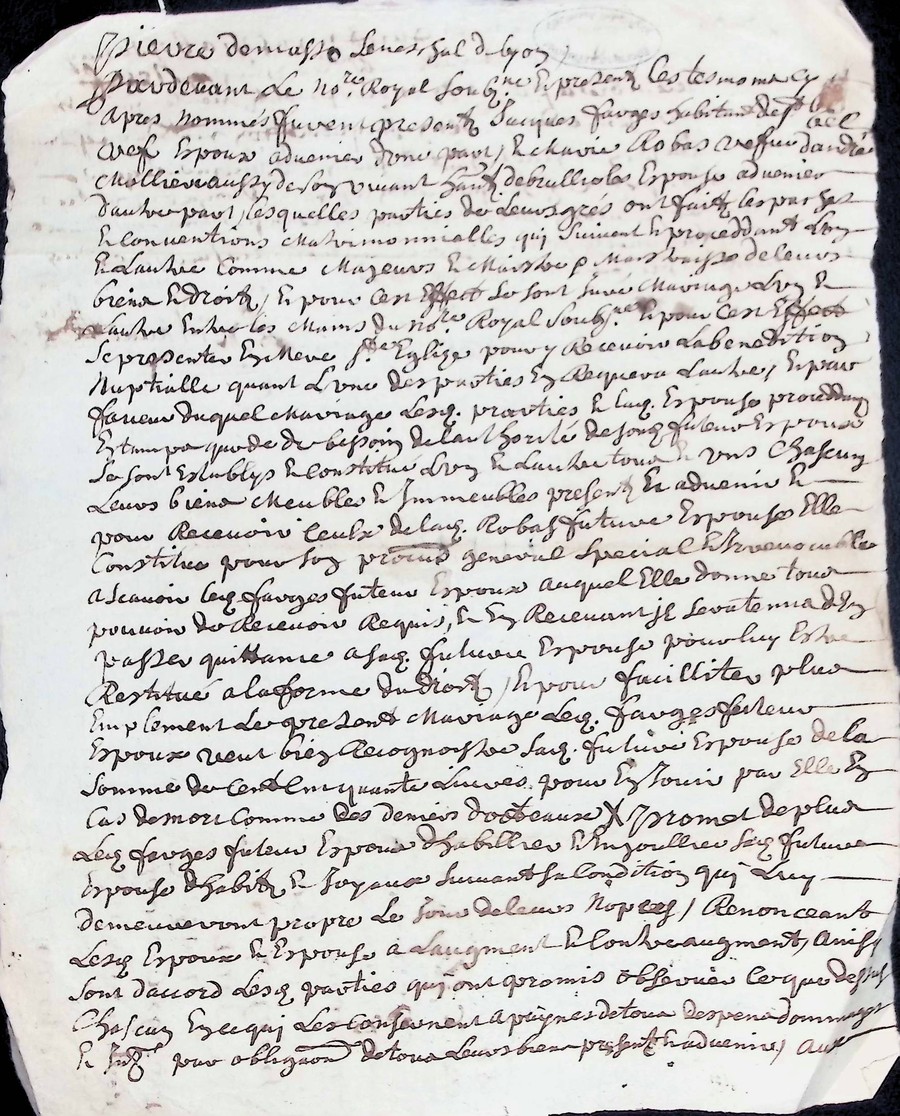 Pierre demasso seneschal de lyon
Pardevant Le No.re Royal soubz.ne Et presentz les tesmoins cy
apres nommes furent presentz Jacques farges habitant de st
vesf Espoux advenier d'une part, Et Marie Robas veffve d'andre
Mollieres aussy de son vivant habt. de brullioles Espouse advenier
dautre part, lesquelles parties de Leurs gres ont faictz les paches
Et conventions Matrimonnialles qui suivent Et proceddant Lun
Et Lautre comme Majeurs Et Maistre & Maistraisse de leurs
biens Et droitz, Et pour cest Effect se sont jure Mariage Lun Et
Lautre Entre les Mains du No.re Royal soubz.ne Et pour cest Effect
se presenter En Mere s.te Eglise pour y Recevoir La benedition
Nuptialle quant Lune des parties En Requera Lautre, Et par
faveur duquel Mariage Lesq. parties Et laq. Espouse proceddant
Entant que de de bessoin de lauthorite de sond futeur Espoux
se sont Establys Et constitue Lun Et Lautre tous Et uns Chascun
Leurs biens Meubles Et Immeubles presentz Et advenir Et
pour Recevoir ceulx de laq. Robas future Espouse Elle
Constitue pour son procur general special Et Irrevocable
ascavoir leq. farges futeur Espoux auquel Elle donne tout
pouvoir de Recevoir Requis, Et En Recevant jl sera tenu d'En
passer quittance a saq. future Espouse pour luy Estre
Restitué a la forme du droitz, Et pour facilliter plus
Emplement Le present Mariage Leq. farges futeur
Espoux veut bien Recognoistre saq. future Espouse de la
somme de Cent Cinquante Livres pour En Jouir par Elle En
Cas de mort Comme des deniers docteaux X promet de plus
Leq. farges futeur Espoux d'habillier Et Enjoullier saq. future
Espouse d'habitz Et Joyaux suivant sa Condition qui Luy
demeureront propre Le jour de leurs Nopces, Renonceant
Lesq. Espoux Et Espouse a Laugment Et Contre augment, ainsy
sont daccord Lesq. parties qui ont promis observer Ce que dessus
Chascun En ce qui Les Consernent a paynes de tous despens dommages
Et Int. par obligaon de tous Leurs biens presentz Et advenir, aux